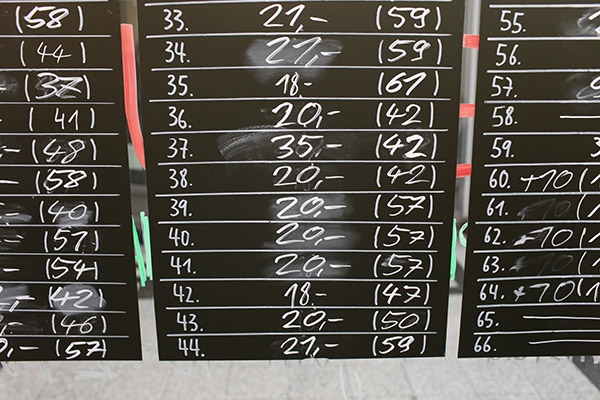 (58)
(44)
(37)
(41)
(48)
(58)
(40)
(57)
(54)
(42)
(46)
(57)
33. 21,- (59)
34. 21,- (59)
35. 18.- (61)
36. 20,- (42)
37. 35,- (42)
38. 20,- (42)
39. 20,- (57)
40. 20,- (57)
41. 20,- (57)
42. 18.- (47)
43. 20,- (50)
44. 21,- (59)
55.
56.
57.
58.
59.
60. +70 (1
61.
62. +70 (1
63.
64. +70 (1
65.
66.